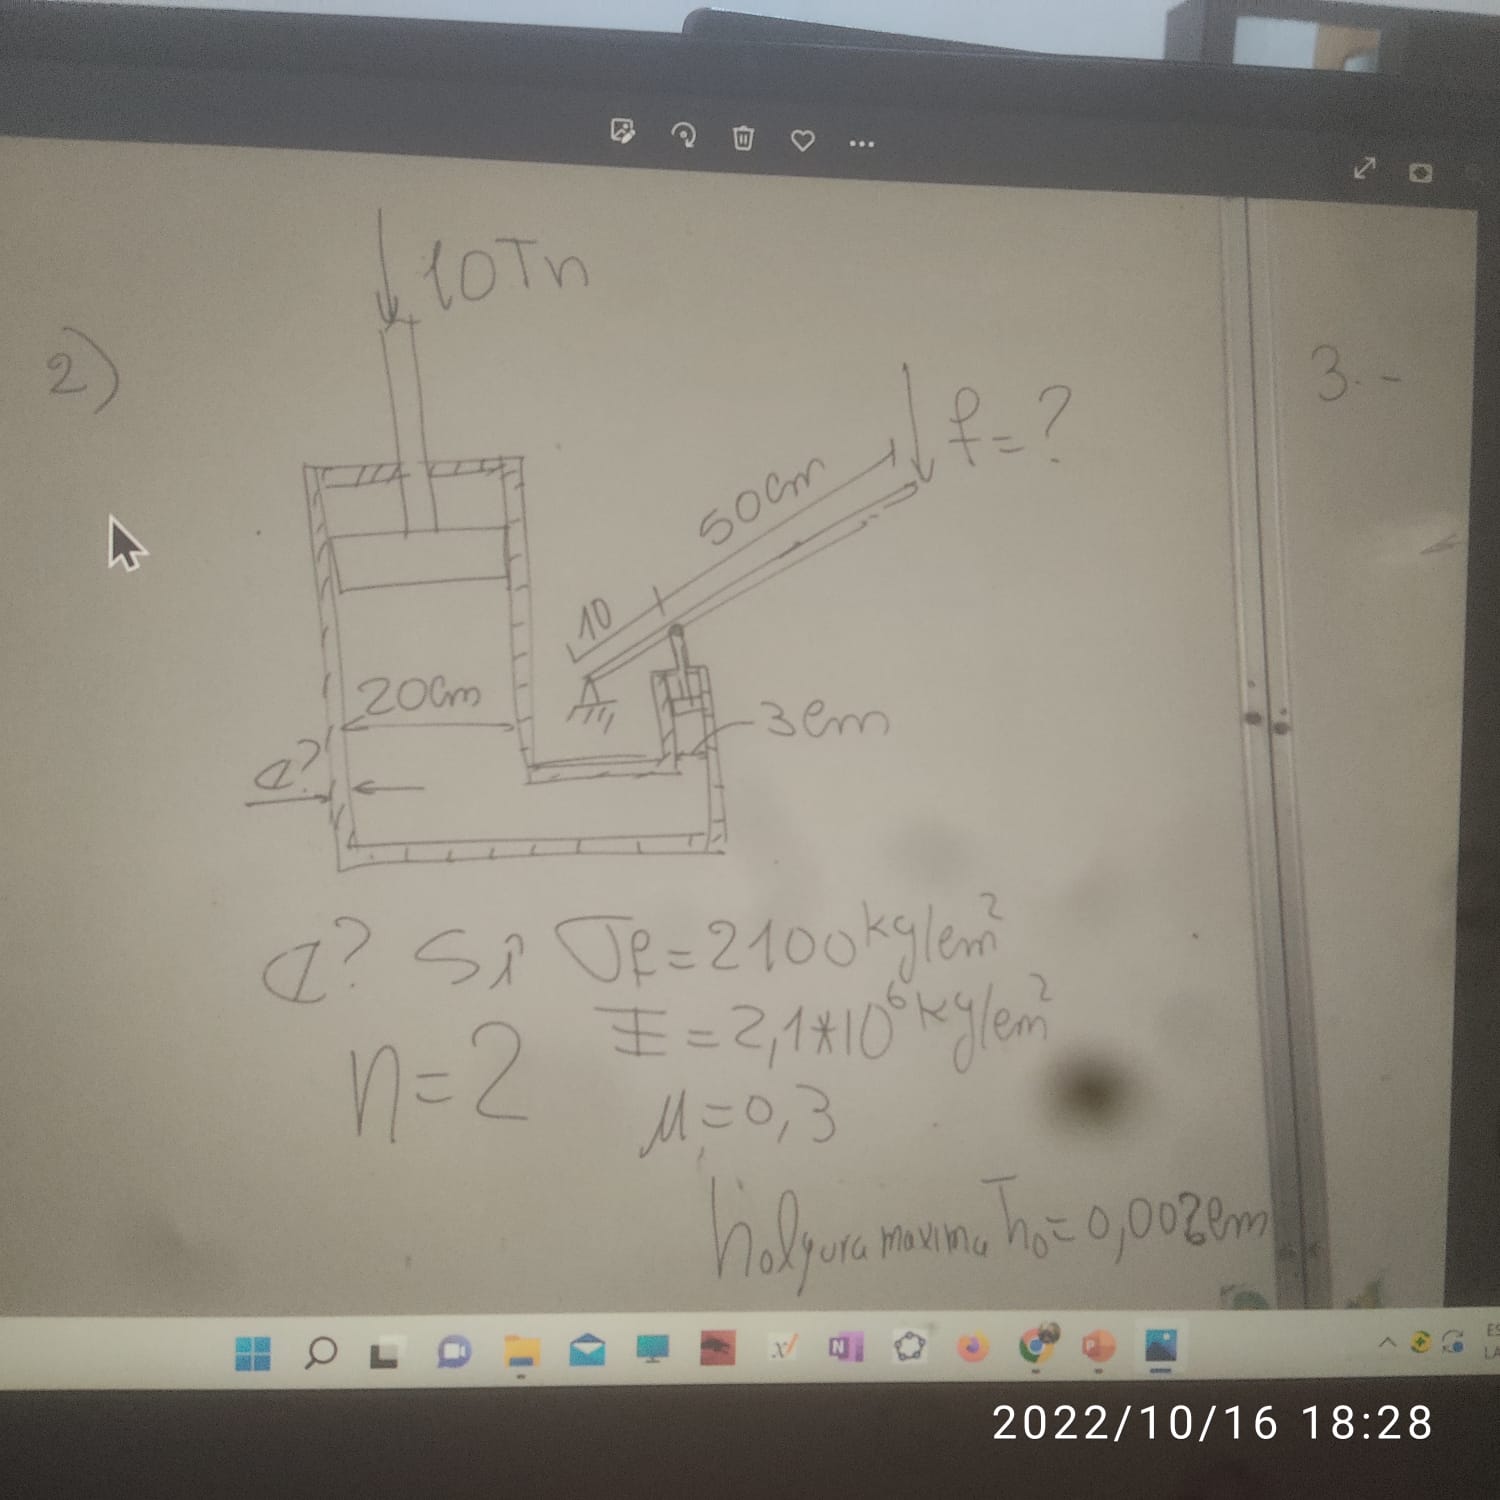 10Tn
2)
3.-
f=?
50cm
10
20cm
3cm
e?
e? Si σf=2100kg/cm²
E=2,1*10⁶kg/cm²
n=2
μ=0,3
holgura maxima ho=0,002cm
ES
LA
2022/10/16 18:28